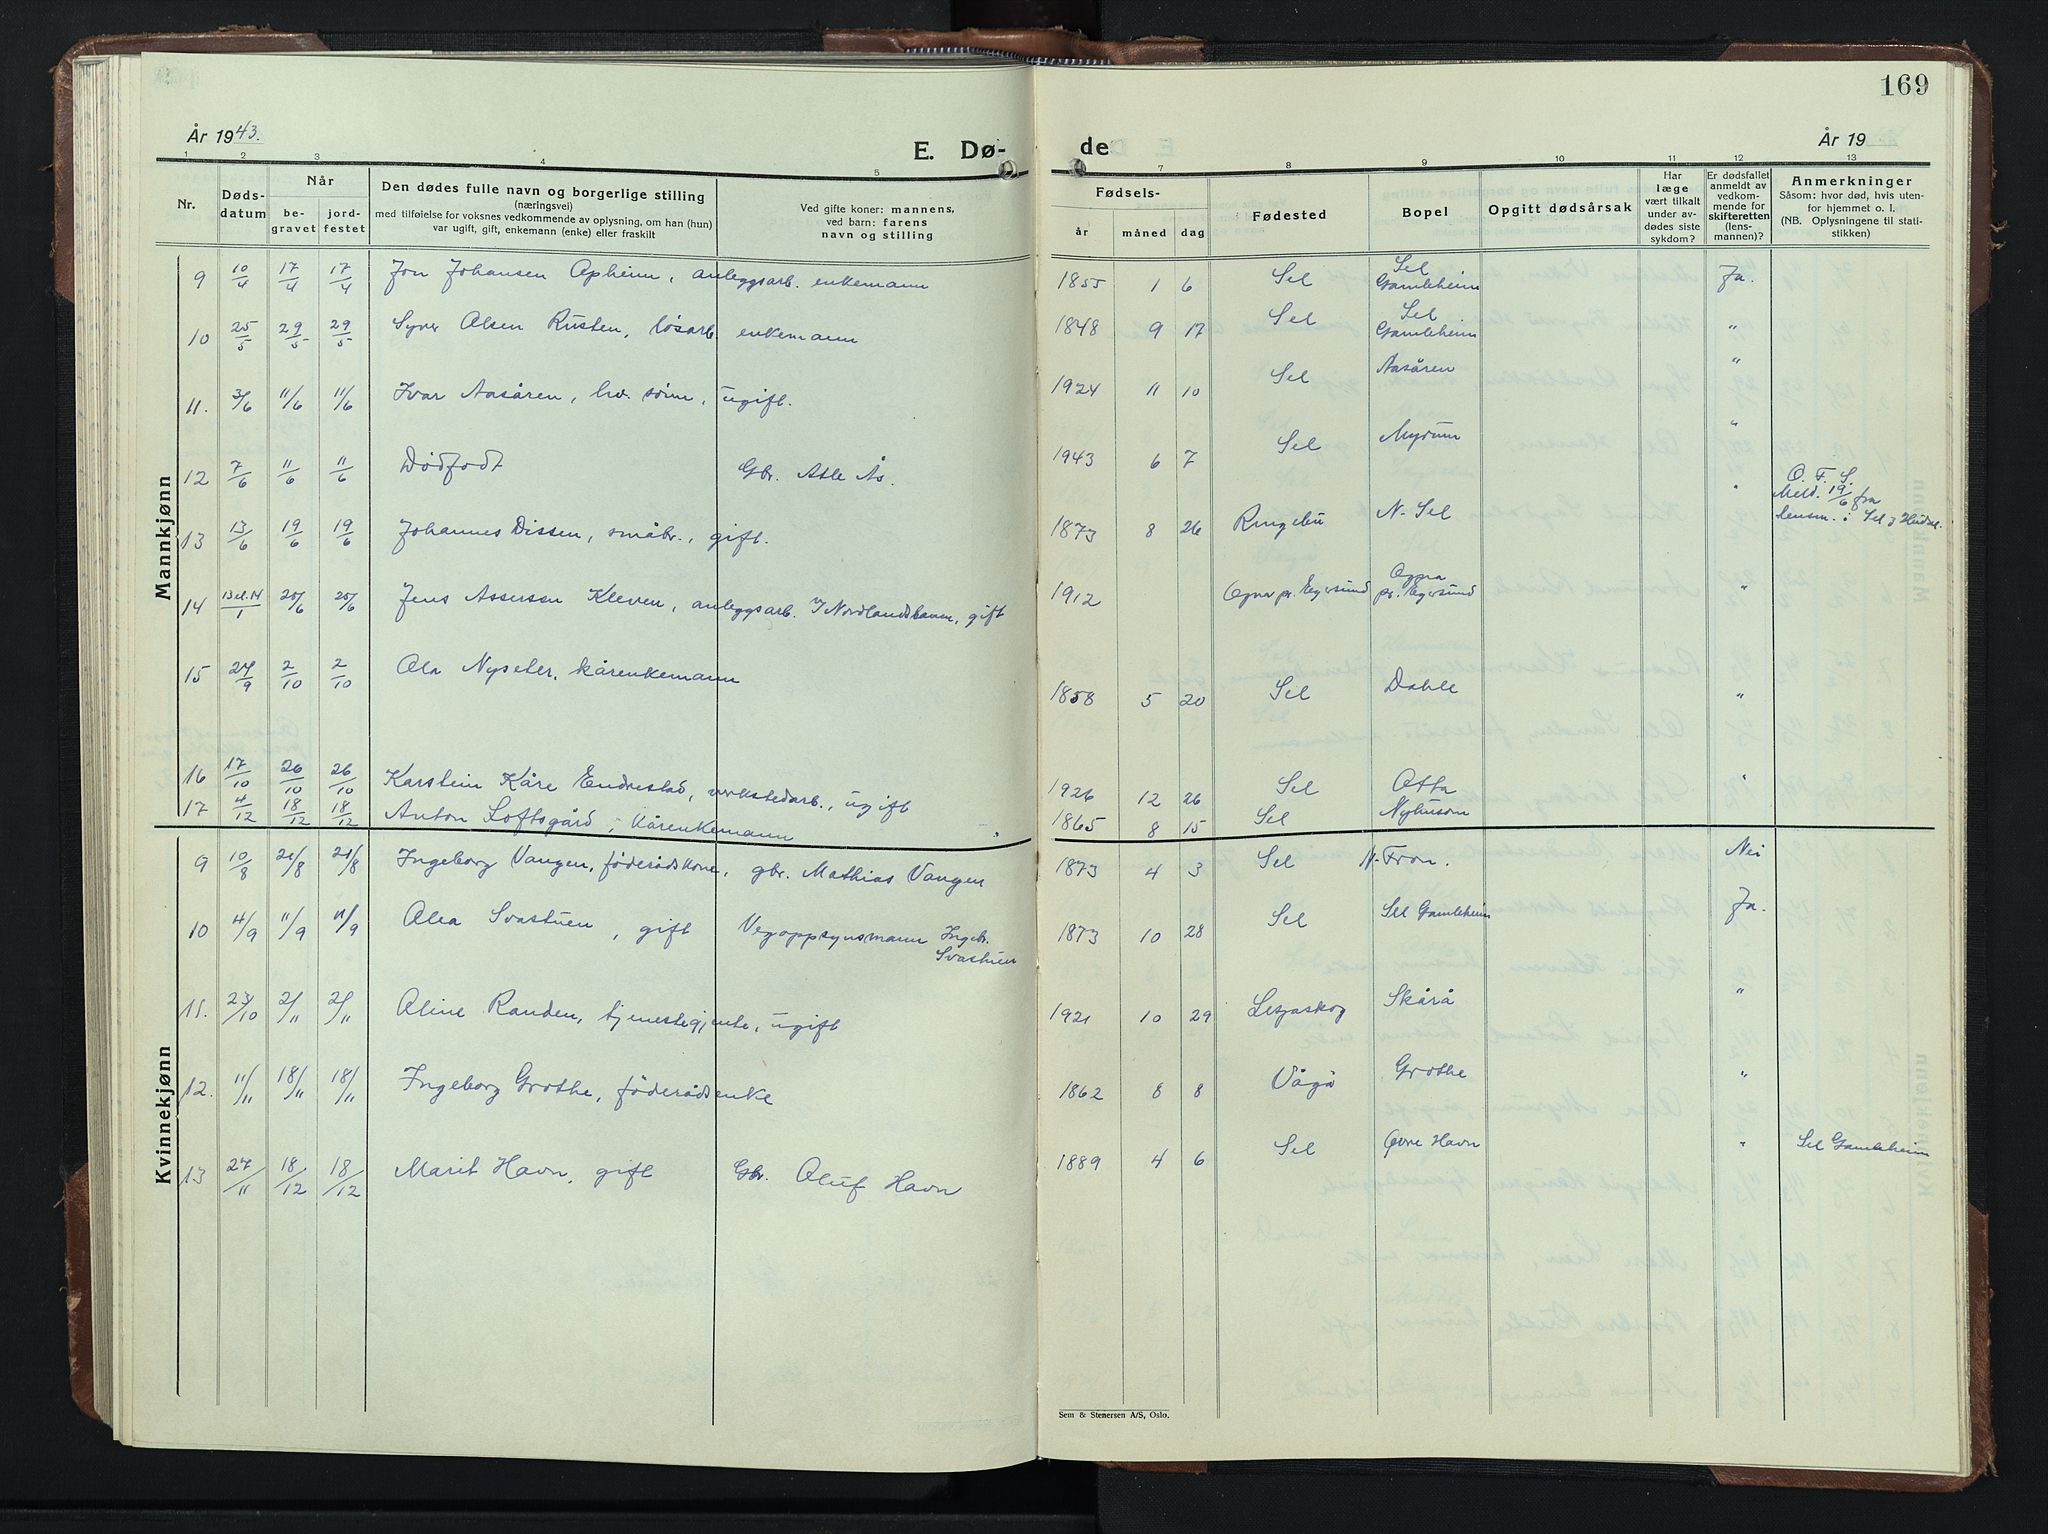 169
År 1943.
E. Dø-
de
År 19
1 2 3 4 5 7 8 9 10 11 12 13
Nr.
Døds-
datum
Når
be-
gravet
jord-
festet
Den dødes fulle navn og borgerlige stilling
(næringsvei)
med tilføielse for voksnes vedkommende av oplysning, om han (hun)
var ugift, gift, enkemann (enke) eller fraskilt
Ved gifte koner: mannens,
ved barn: farens
navn og stilling
Fødsels-
år måned dag
Fødested
Bopel
Opgitt dødsårsak
Har
læge
vært tilkalt
under av-
dødes siste
sykdom?
Er dødsfallet
anmeldt av
vedkom-
mende for
skifteretten
(lens-
mannen)?
Anmerkninger
Såsom: hvor død, hvis uten-
for hjemmet o. l.
(NB. Oplysningene til stati-
stikken)
Mannkjønn
9 10/4 17/4 17/4 Jon Johansen Apheim, anleggsarb. enkemann 1855 1 6 Sel Sel Gamleheim Ja.
10 25/5 29/5 29/5 Syver Olsen Rusten, løsarb. enkemann 1848 9 17 Sel Sel Gamleheim "
11. 3/6 11/6 11/6 Ivar Aasåren, hv. sønn, ugift. 1924 11 10 Sel Aasåren "
12 7/6 11/6 11/6 Dødfødt Gbr. Atle Ås. 1943 6 7 Sel Myrum "
13 13/6 19/6 19/6 Johannes Dissen, småbr., gift. 1873 8 26 Ringebu N-Sel " O. F. S.
Meld. 19/6 fra
lensm. i Sel og Heidal.
14 13 el. 14/1 20/6 20/6 Jens Assersen Kleven, anleggsarb. v/ Nordlandsbanen, gift 1912 Ogna pr. Egersund Ogna pr. Egersund "
15 27/9 2/10 2/10 Ola Nyseter, kårenkemann 1858 5 20 Sel Dahle "
16 17/10 26/10 26/10 Karstein Kåre Endrestad, verkstedarb., ugift 1926 12 26 Sel Otta "
17 4/12 18/12 18/12 Anton Loftsgård, kårenkemann 1865 8 15 Sel Nyhusom
Kvinnekjønn
9 10/8 21/8 21/8 Ingeborg Vangen, føderådskone, gbr. Mathias Vangen 1873 4 3 Sel N-Fron. Nei
10 4/9 11/9 11/9 Olea Svastuen, gift Vegoppsynsmann Ingebr. Svastuen 1873 10 28 Sel Sel Gamleheim Ja.
11. 23/10 2/11 2/11 Oline Randen, tjenestegjente, ugift 1921 10 29 Lesjaskog Skårå "
12. 11/11 18/11 18/11 Ingeborg Grothe, føderådsenke 1862 8 8 Vågå Grothe "
13 27/11 18/12 18/12 Marit Havn, gift Gbr. Oluf Havn 1889 4 6 Sel Øvre Havn " Sel Gamleheim
Sem & Stenersen A/S, Oslo.